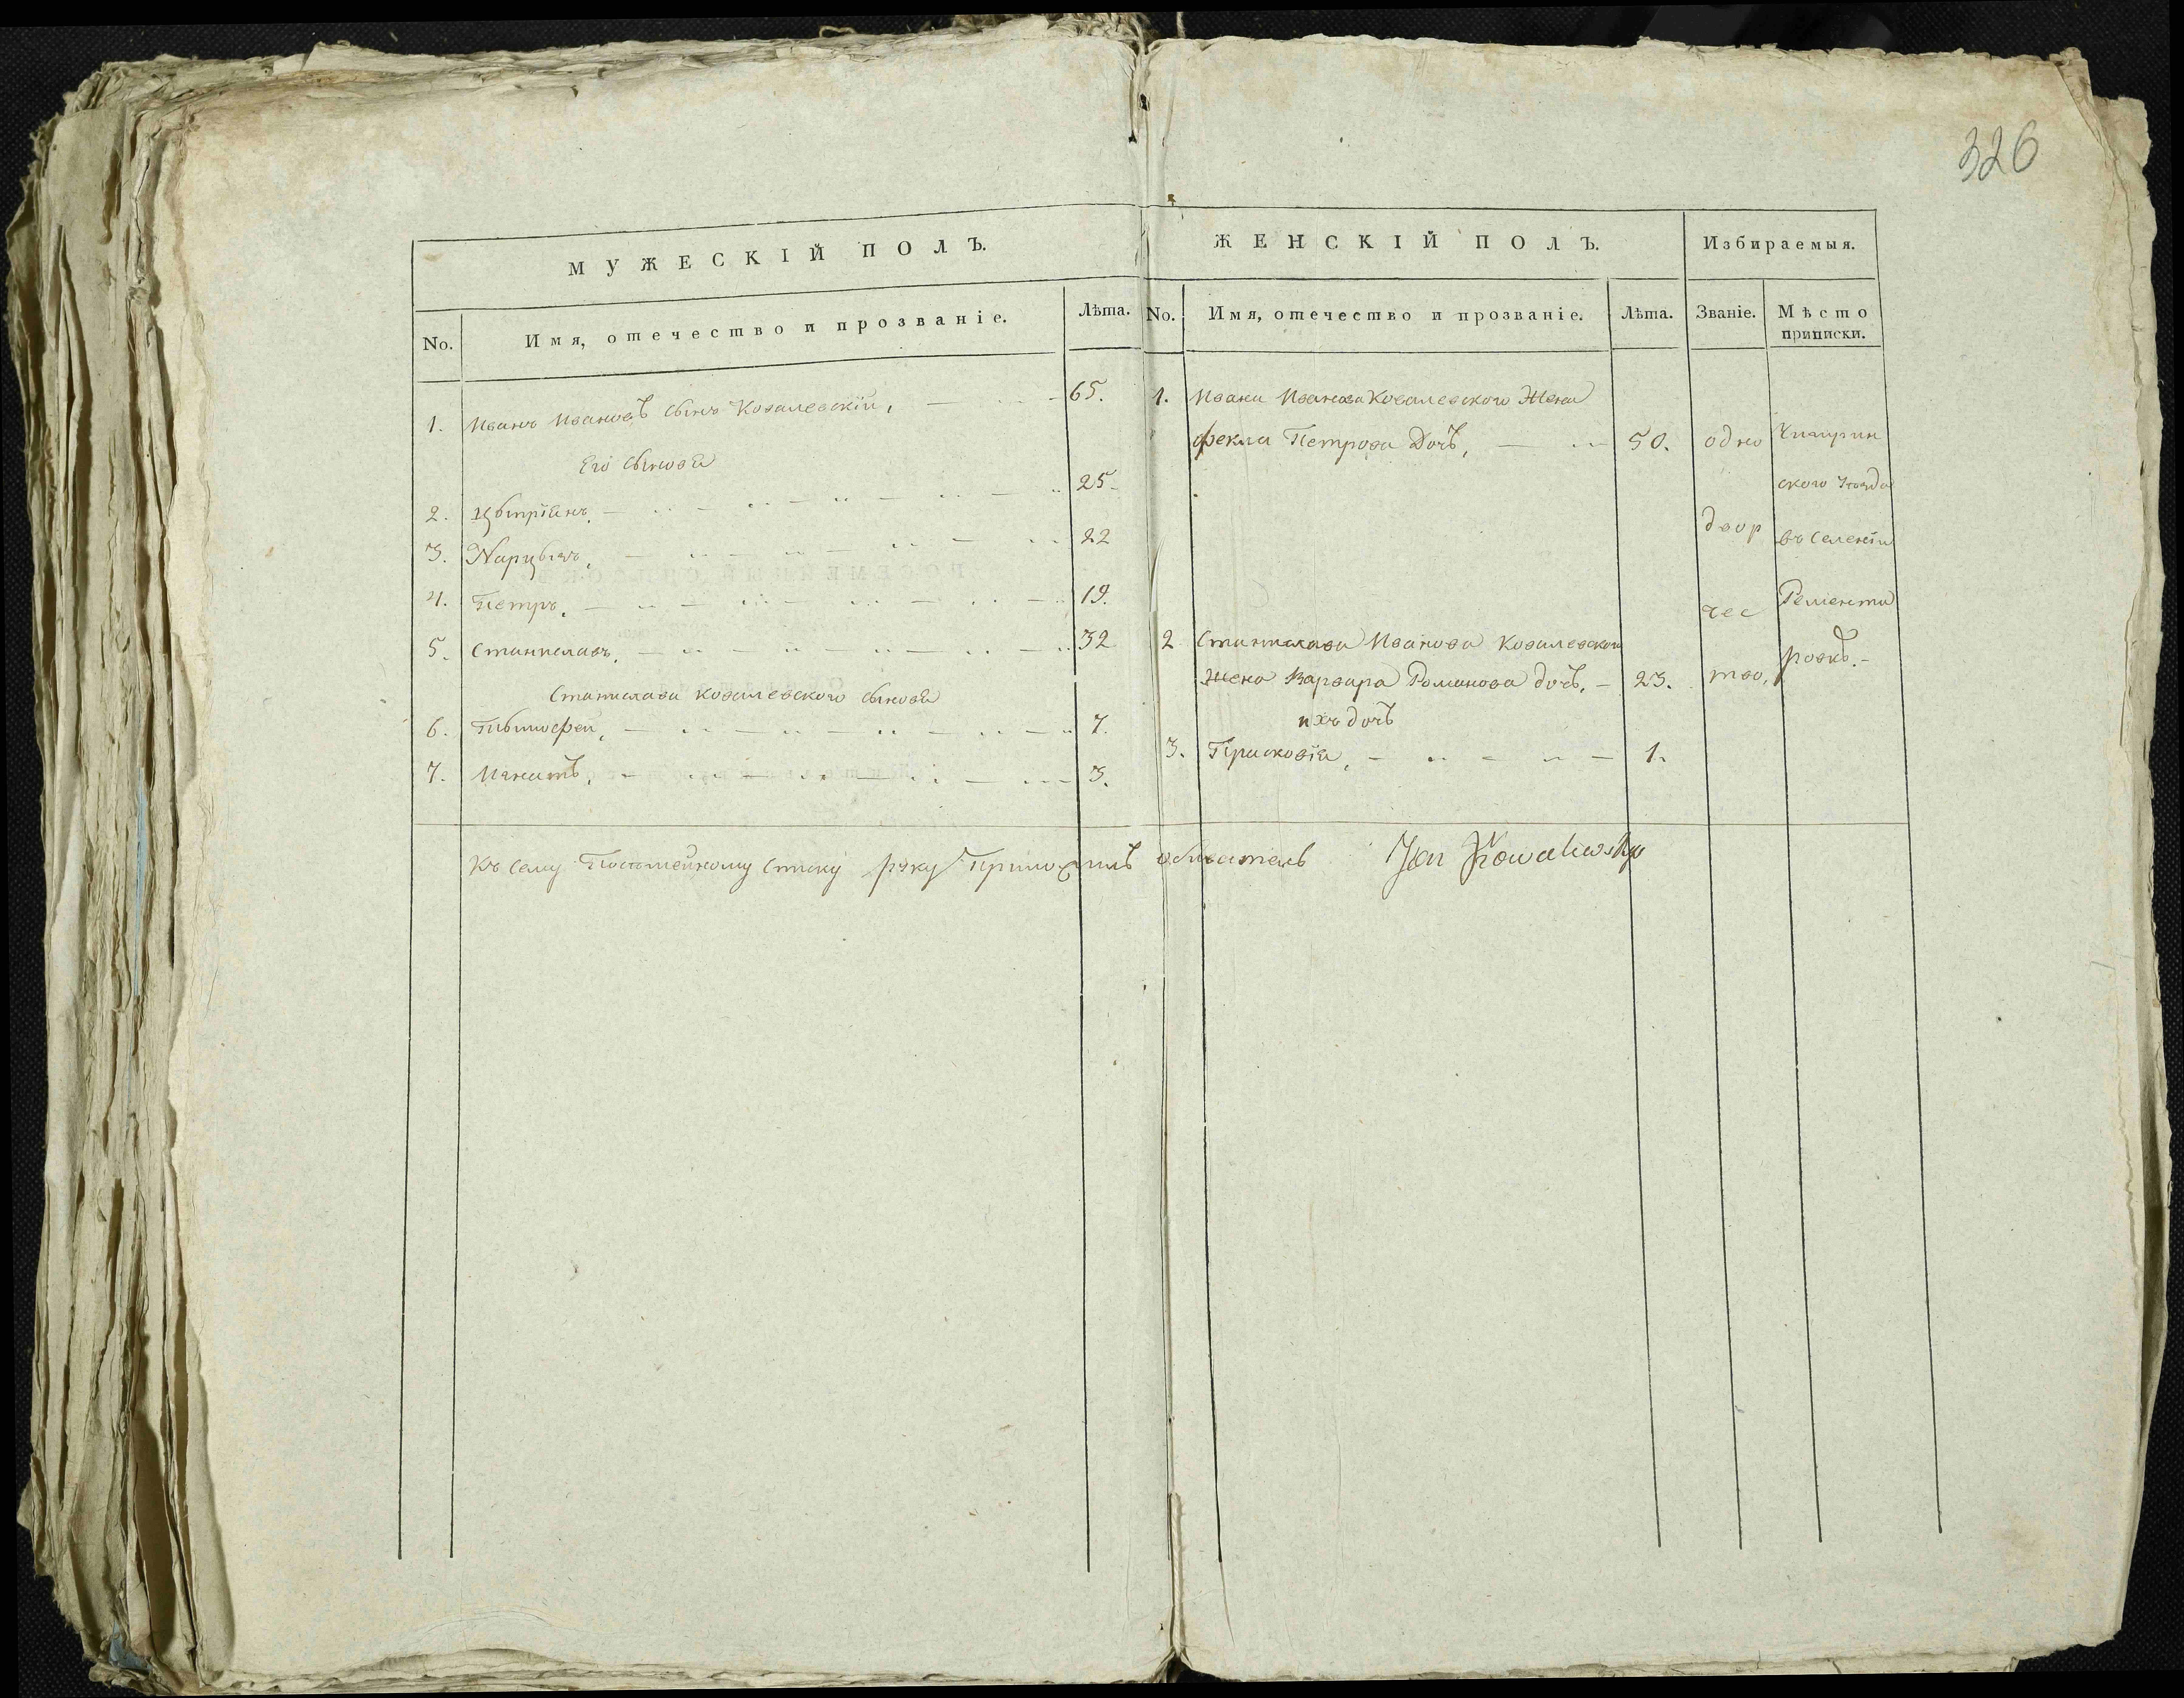 326
МУЖЕСКІЙ ПОЛЪ.
No. Имя, отечество и прозваніе. Лѣта.
1. Иванъ Ивановъ сынъ Ковалевскій, 65.
Его сыновя
2. 25
3. 22
4. Петръ. 19.
5. Станиславъ. 32
Станислава Ковалевского сыновя
6. Тимофей, 7.
7. Игнатъ. 3.
ЖЕНСКІЙ ПОЛЪ.
Избираемыя.
No. Имя, отечество и прозваніе. Лѣта. Званіе. Мѣсто
приписки.
1. Ивана Иванова Ковалевского Жена
Фекла Петрова Дочъ, 50.
2 Станислава Иванова Ковалевского
Жена Варвара Романова дочъ, 23.
ихъ дочъ
3. Присковія, 1.
одно
двор
чес
тво,
Чигирин
ского уезда
въ селеніи
Къ сему Посемейному списку руку приложилъ обыватель Jan Kowalewsky